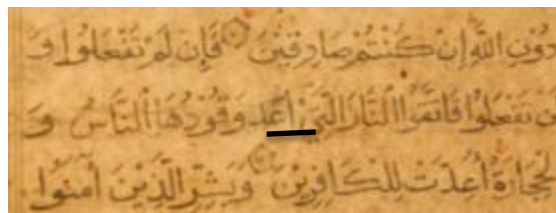 دُوْنِ اللّٰهِ اِنْ كُنْتُمْ صَادِقِيْنَ فَاِنْ لَمْ تَفْعَلُوْا وَ
نْ تَفْعَلُوْا فَاتَّقُوا النَّارَ الَّتِيْ اُعَد وَقُوْدُهَا النَّاسُ وَ
لْحِجَارَةُ اُعِدَّتْ لِلْكَافِرِيْنَ وَبَشِّرِ الَّذِيْنَ اٰمَنُوْا